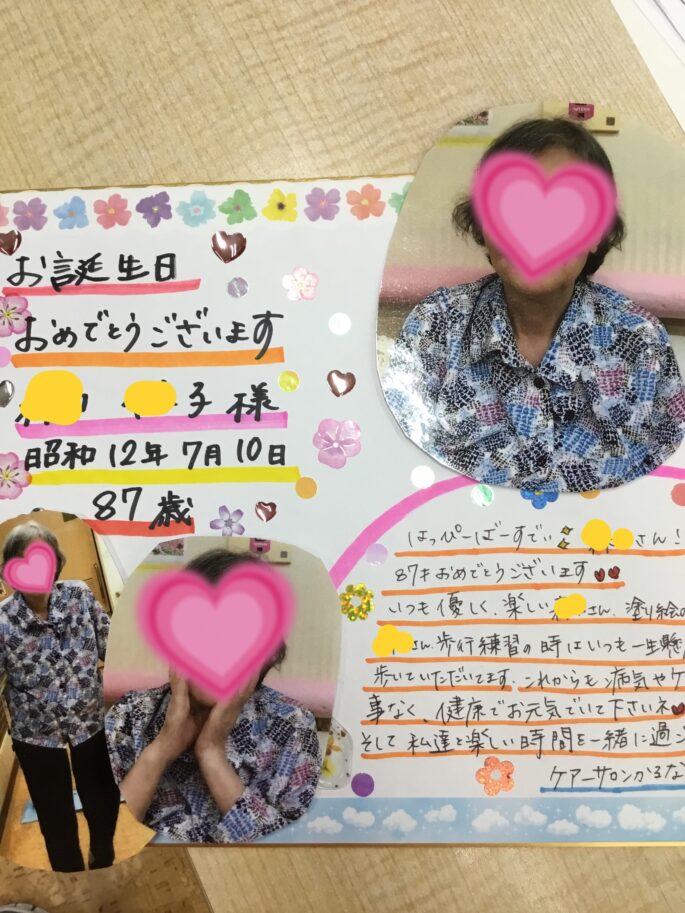 お誕生日
おめでとうございます
子様
昭和12年7月10日
87歳
はっぴーばーすでい さん!
87才おめでとうございます
いつも優しく、楽しい さん、塗り絵の
さん、歩行練習の時はいつも一生懸
歩いていただいてます。これからも病気やケ
事なく、健康でお元気でいて下さいネ
そして私達と楽しい時間を一緒に過ご
ケアーサロンかるな